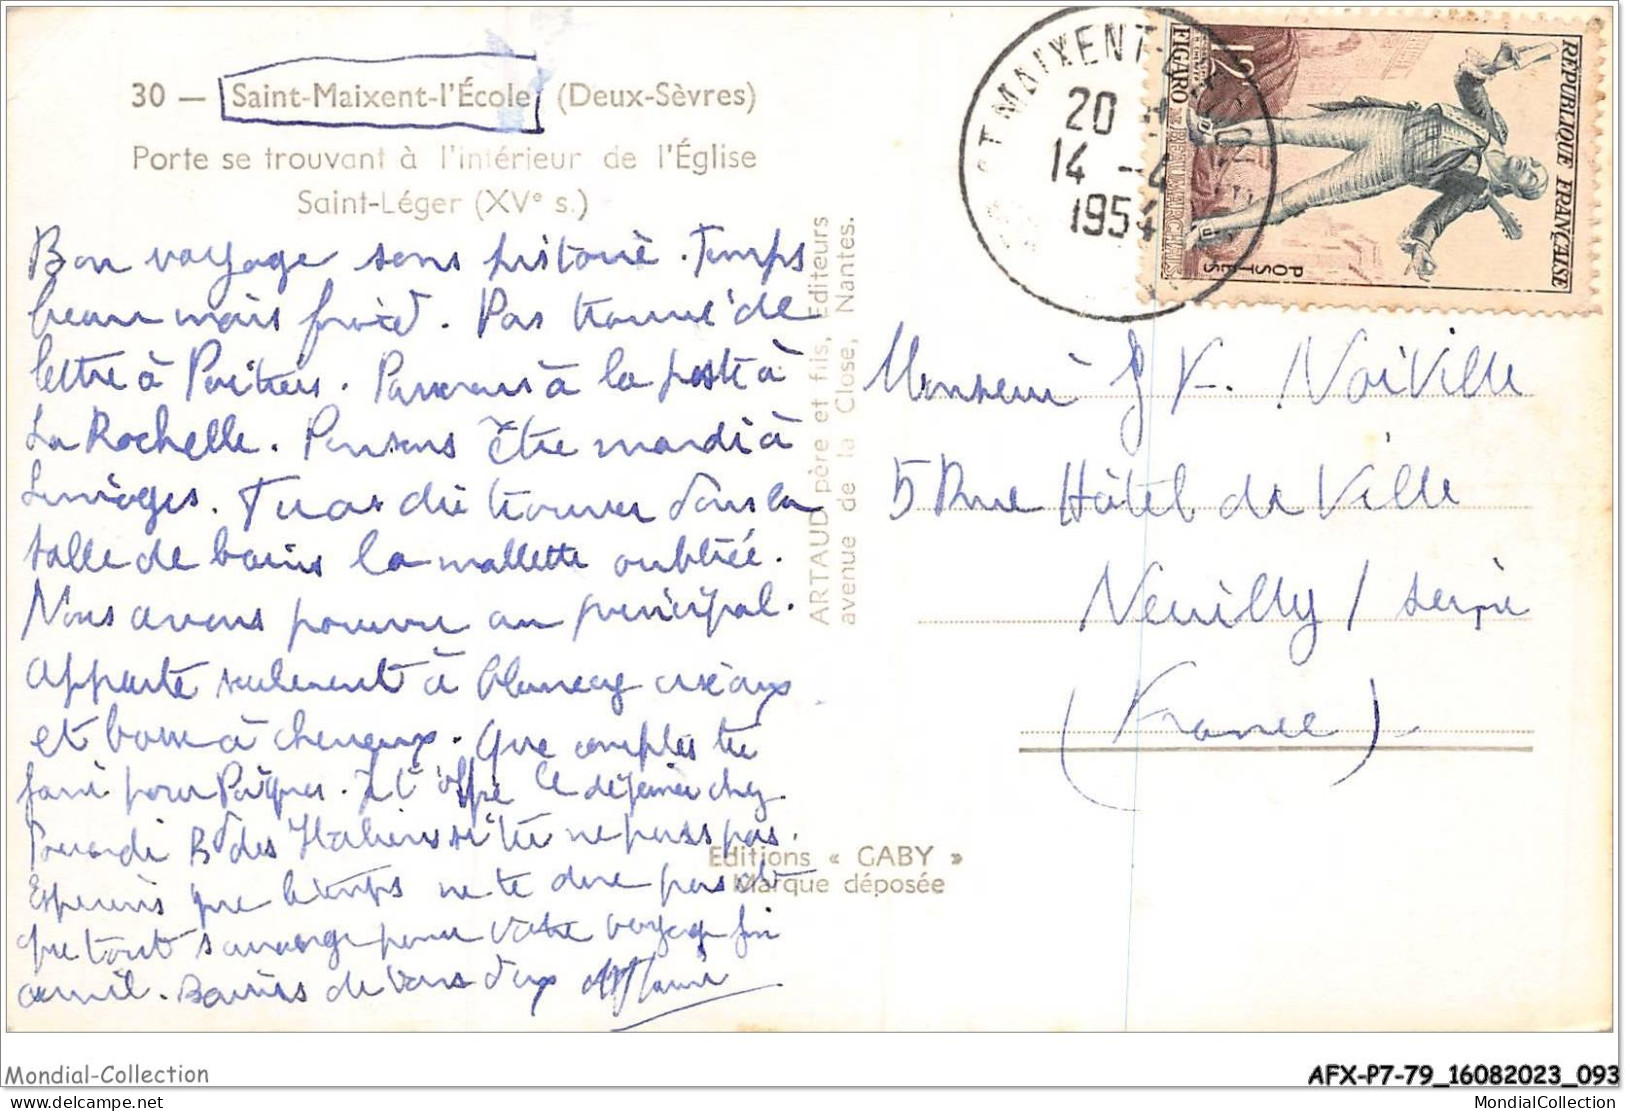 30 — Saint-Maixent-l'École (Deux-Sèvres)
Porte se trouvant à l'intérieur de l'Église
Saint-Léger (XVe s.)
Bon voyage sans histoire. Temps
beau mais froid. Pas trouvé de
lettre à Poitiers. Passerons à la poste à
La Rochelle. Pensons être mardi à
Limoges. Tu as dû trouver dans la
salle de bains la mallette oubliée.
Nous avons pourvu au principal.
Apporte seulement à ciseaux
et à cheveux. Que comptes tu
faire pour Pâques. Je t'offre le déjeuner chez
Bd des Italiens si tu ne pars pas.
Espérons que le temps ne te dure pas et
que tout s'arrange pour votre voyage fin
avril. Baisers de nous deux
ARTAUD père et fils, Editeurs
avenue de la Close, Nantes.
Editions « GABY »
Marque déposée
ST MAIXENT-L'ECOLE
20 H
14 -4
1954
REPUBLIQUE FRANÇAISE
POSTES
12F
FIGARO DE BEAUMARCHAIS
Monsieur
5 Rue Hôtel de Ville
Neuilly / Seine
(France)
Mondial-Collection
AFX-P7-79_16082023_093
delcampe.net
MondialCollection